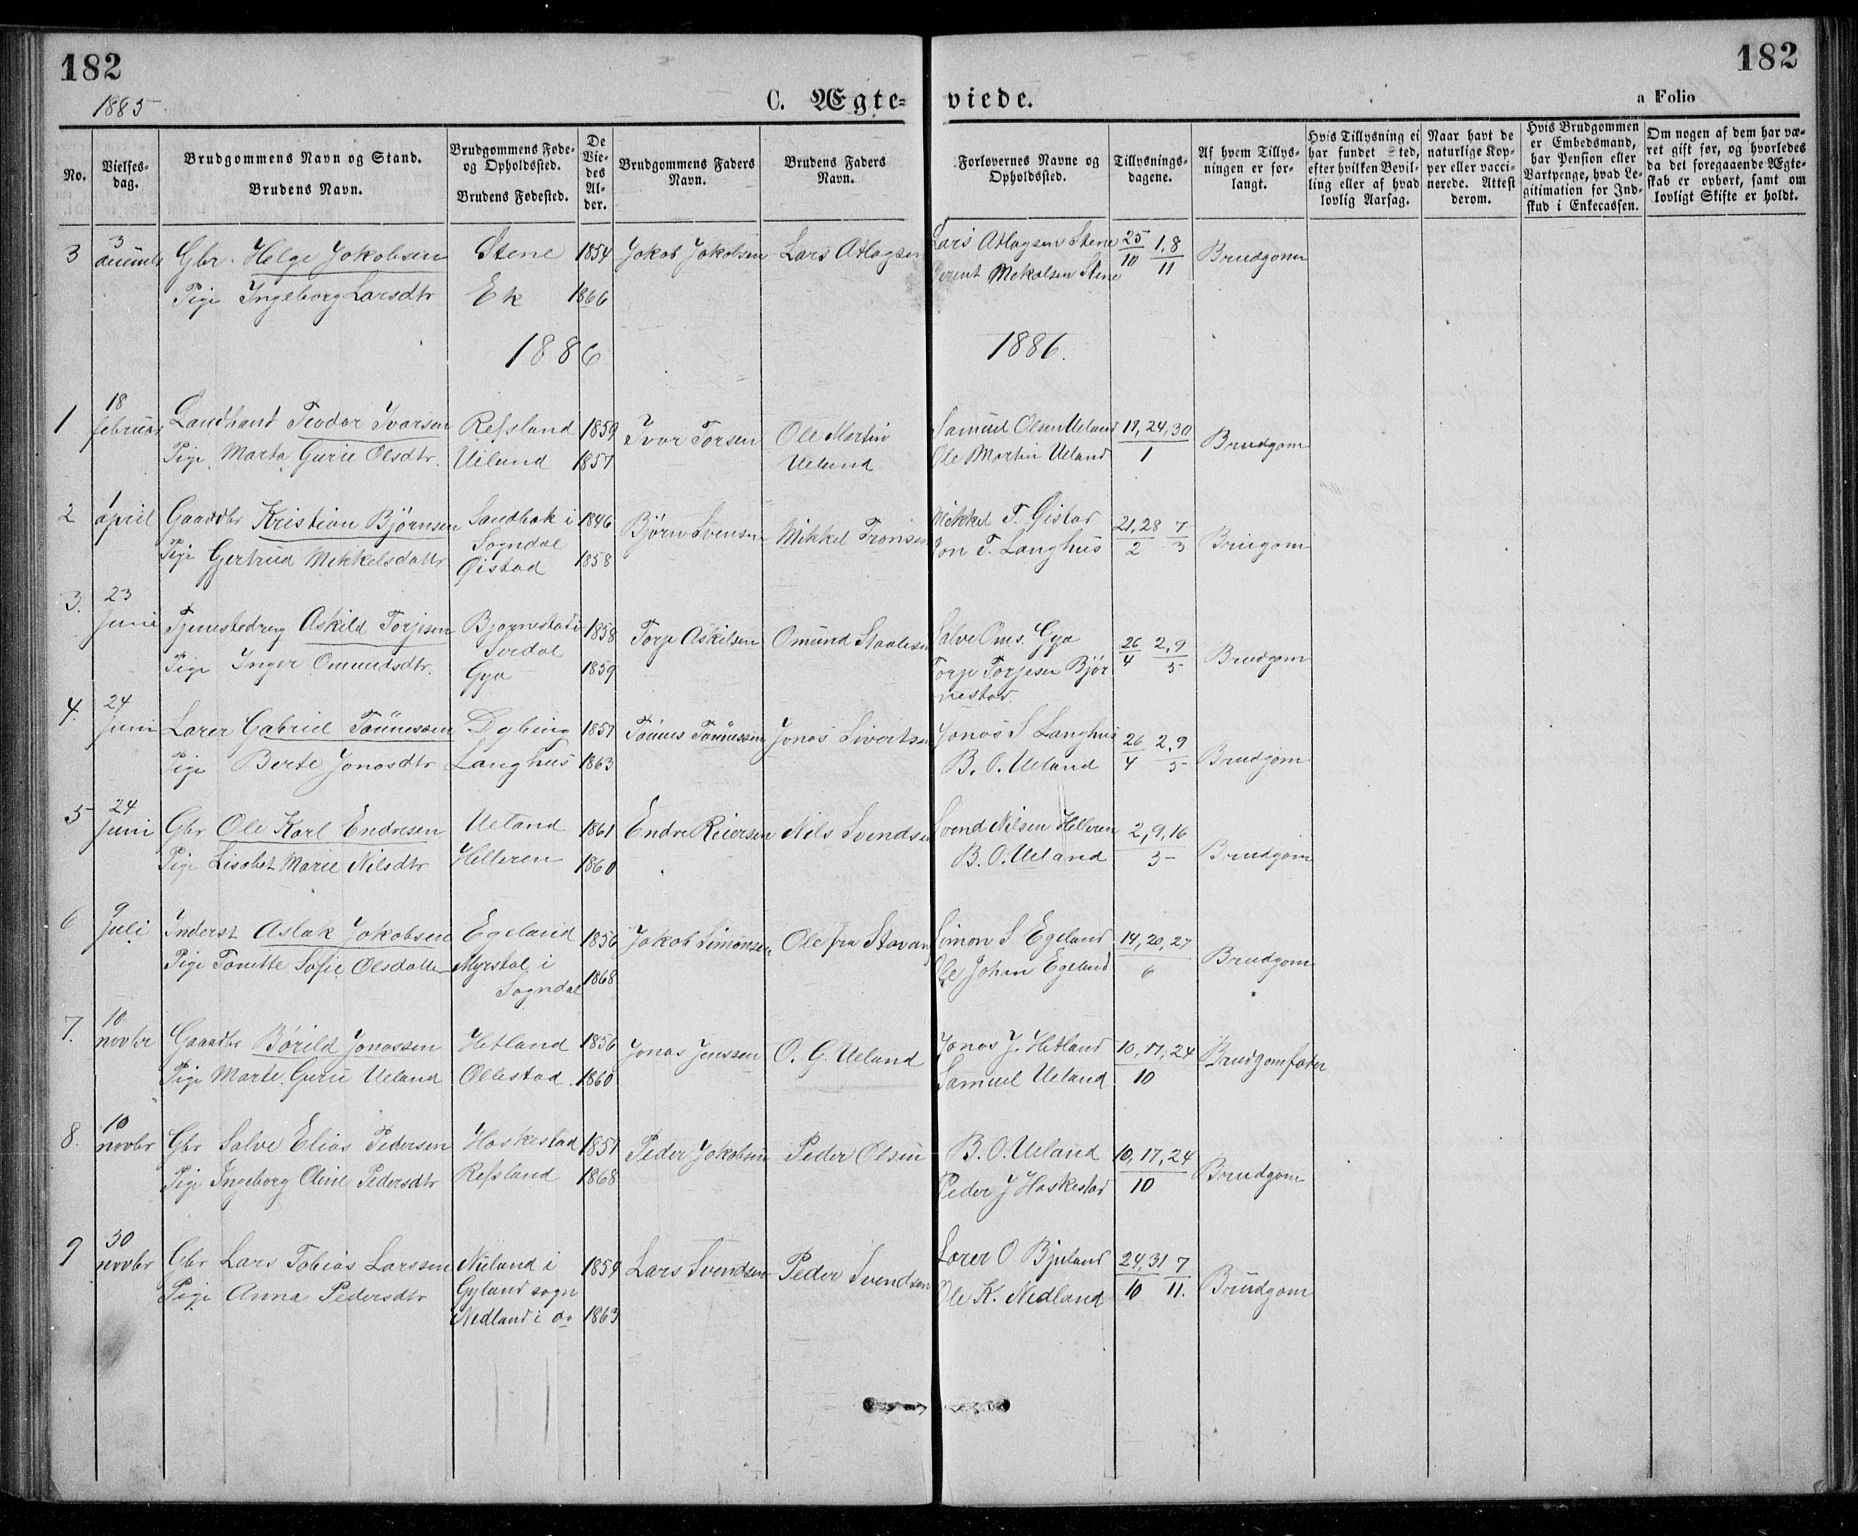 182
182
1885
C. Ægte-
viede.
a Folio
No.
Vielses-
dag.
Brudgommens Navn og Stand.
Brudens Navn.
Brudgommens Føde-
og Opholdssted.
Brudens Fødested.
De
Vie-
des
Al-
der.
Brudgommens Faders
Navn.
Brudens Faders
Navn.
Forlovernes Navne og
Opholdssted.
Tillysnings-
dagene.
Af hvem Tillys-
ningen er for-
langt.
Hvis Tillysning ei
har fundet Sted,
efter hvilken Bevil-
ling eller af hvad
lovlig Aarsag.
Naar havt de
naturlige Kop-
per eller vacci-
nerede. Attest
derom.
Hvis Brudgommen
er Embedsmand,
har Pension eller
Vartpenge, hvad Le-
gitimation for Ind-
skud i Enkecassen.
Om nogen af dem har væ-
ret gift før, og hvorledes
da det foregaaende Ægte-
skab er ophørt, samt om
lovligt Skifte er holdt.
3 3 Gbr. Helge Jakobsen Stene 1854 Jakob Jakobsen Lars Atlagsen Lars Atlagsen Stene 25/10 1,8/11 Brudgom
Pige Ingeborg Larsdtr Ek 1866 Berent Mekalsen Stene
1886 1886.
1 18 februar Landhand Teodor Ivarsen Refsland 1859 Ivar Torsen Ole Martin Ueland Samuel Olsen Ueland 17,24,30/1 Brudgom
Pige Marta Gurie Olsdtr. Ueland 1857 Ole Martin Ueland
2 1 april Gaardbr Kristian Bjørnsen Sandbek i Sogndal 1846 Bjørn Svensen Mikkel Tronsen Mekkel T. Øistad 21,28/2 7/3 Brudgom
Pige Gjertrud Mikkelsdatter Øistad 1858 Jon T. Langhus
3. 23 Juni Tjenestedreng Askild Torjesen Bjornestad i Sirdal 1858 Torje Askilsen Omund Staalesen Salve Oms. Gya 26/4 2,9/5 Brudgom
Pige Inger Omundsdtr. Gya 1859 Torje Torjesen Bjørnestad
4. 24 Juni Lærer Gabriel Tönnessen Dybing 1857 Tönnes Tönnessen Jonas Sivertsen Jonas S Langhus 26/4 2,9/5 Brudgom
Pige Berte Jonasdtr Langhus 1863 B. O. Ueland
5 24 Juni Gbr Ole Karl Endresen Ueland 1861 Endre Reiersen Nils Svendsen Svend Nilsen Helleren 2,9,16/5 Brudgom
Pige Lisabet Marie Nilsdtr Helleren 1860 B. O. Ueland
6 9 Juli Inderst Aslak Jakobsen Egeland 1856 Jakob Simonsen Ole fra Stavang Simon S Egeland 14,20,27/6 Brudgom
Pige Tonette Sofie Olsdatter Myrstøl i Sogndal 1868 Ole Johan Egeland
7. 10 novbr Gaardbr Børild Jonassen Hetland 1856 Jonas Jenssen O. G. Ueland Jonas J. Hetland 10,17,24/10 Brudgomfader
Pige Marte Gurie Ueland Ollestad 1860 Samuel Ueland
8. 10 novbr Gbr Salve Elias Pedersen Haskestad 1857 Peder Jakobsen Peder Olsen B. O. Ueland 10,17,24/10 Brudgom
Pige Ingeborg Oline Pedersdtr Refsland 1868 Peder J Haskestad
9 30 novbr Gbr Lars Tobias Larssen Nuland i Gyland sogn 1854 Lars Svendsen Peder Svendsen Lærer O Bjuland 24,31/10 7/11. Brudgom
Pige Anna Pedersdtr Nedland i do 1863 Ole K. Nedland